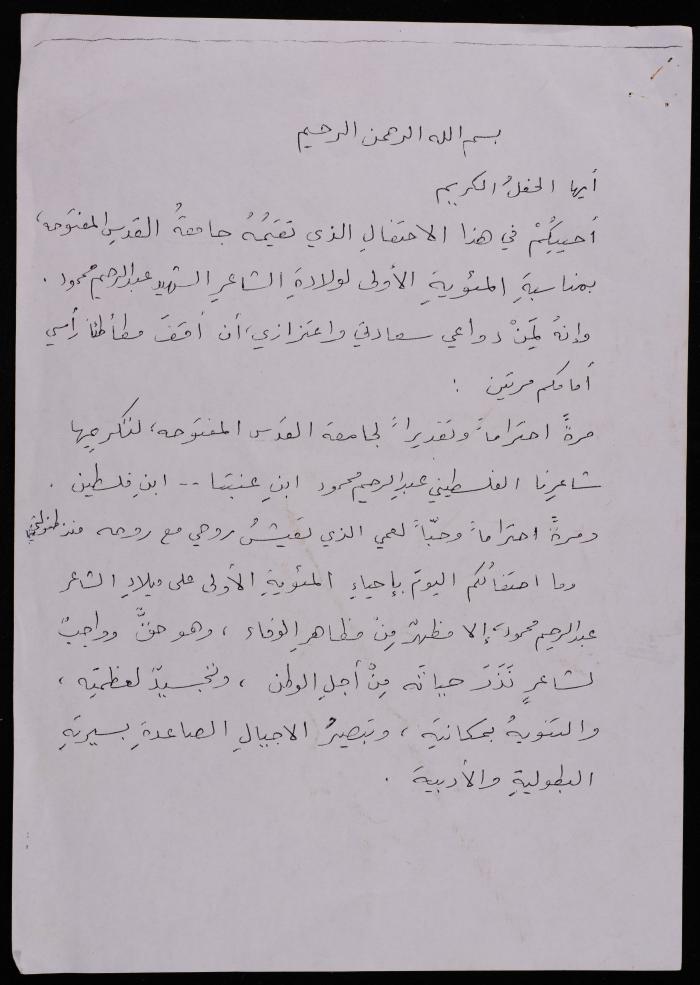 بسم الله الرحمن الرحيم
أيها الحفلُ الكريم
أحييكُمْ في هذا الاحتفالِ الذي تقيمُهُ جامعةُ القدسِ المفتوحه،
بمناسبةِ المئويةِ الأولى لولادةِ الشاعرِ الشهيد عبد الرحيم محمود .
وإنهُ لَمِنْ دواعي سعادتي واعتزازي، أن أقفَ مطأطئاً رأسي
أمامكم مرتين :
مرةً احتراماً وتقديراً لجامعة القدس المفتوحه، لتكريمها
شاعرِنا الفلسطيني عبد الرحيم محمود ابنِ عنبتا -- ابنِ فلسطين .
ومرةً احتراماً وحبّاً لعمي الذي تعيشُ روحي مع روحه منذ طفولتي
وما احتفالُكم اليومَ بإحياءِ المئويةِ الأولى على ميلادِ الشاعر
عبد الرحيم محمود، إلا مظهرٌ مِنْ مظاهرِ الوفاء ، وهو حقٌّ وواجبٌ
لشاعرٍ نَذَرَ حياتَه مِنْ أجلِ الوطن ، وتجسيدٌ لعظمتِه ،
والتنويهُ بمكانتِه ، وتبصيرُ الاجيالِ الصاعدةِ بسيرتِهِ
البطوليةِ والأدبية .